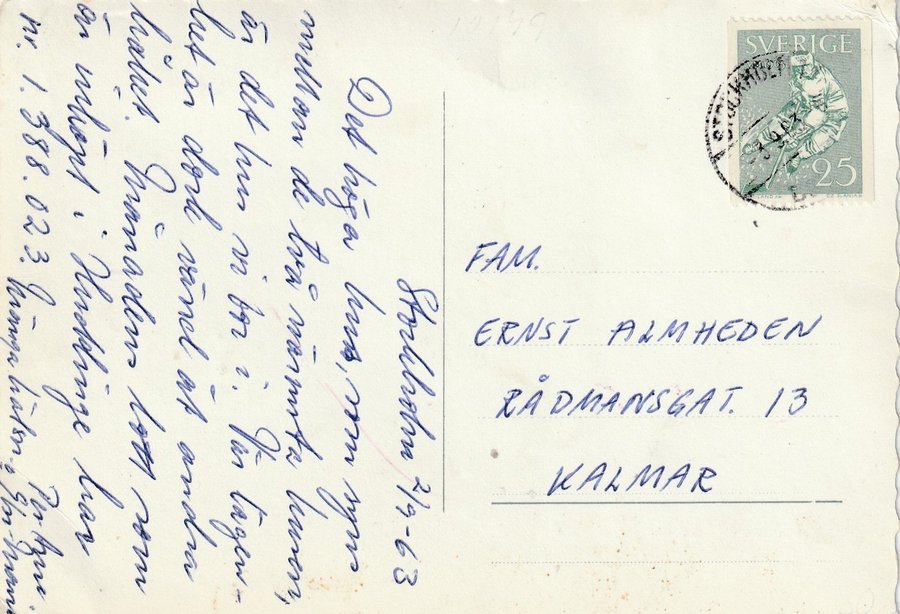 Stockholm 2/9-63
Det höga hus, som syns
mellan de två närmsta husen,
är det hus vi bor i. Vår lägen-
het är dock vänd åt andra
hållet. Månadens lott som
är inköpt i Huddinge har
nr. 1.388.023. Många hälsn.
Per-Arne
SVERIGE
25
STOCKHOLM
3.9.63
FAM.
ERNST ALMHEDEN
RÅDMANSGAT. 13
KALMAR